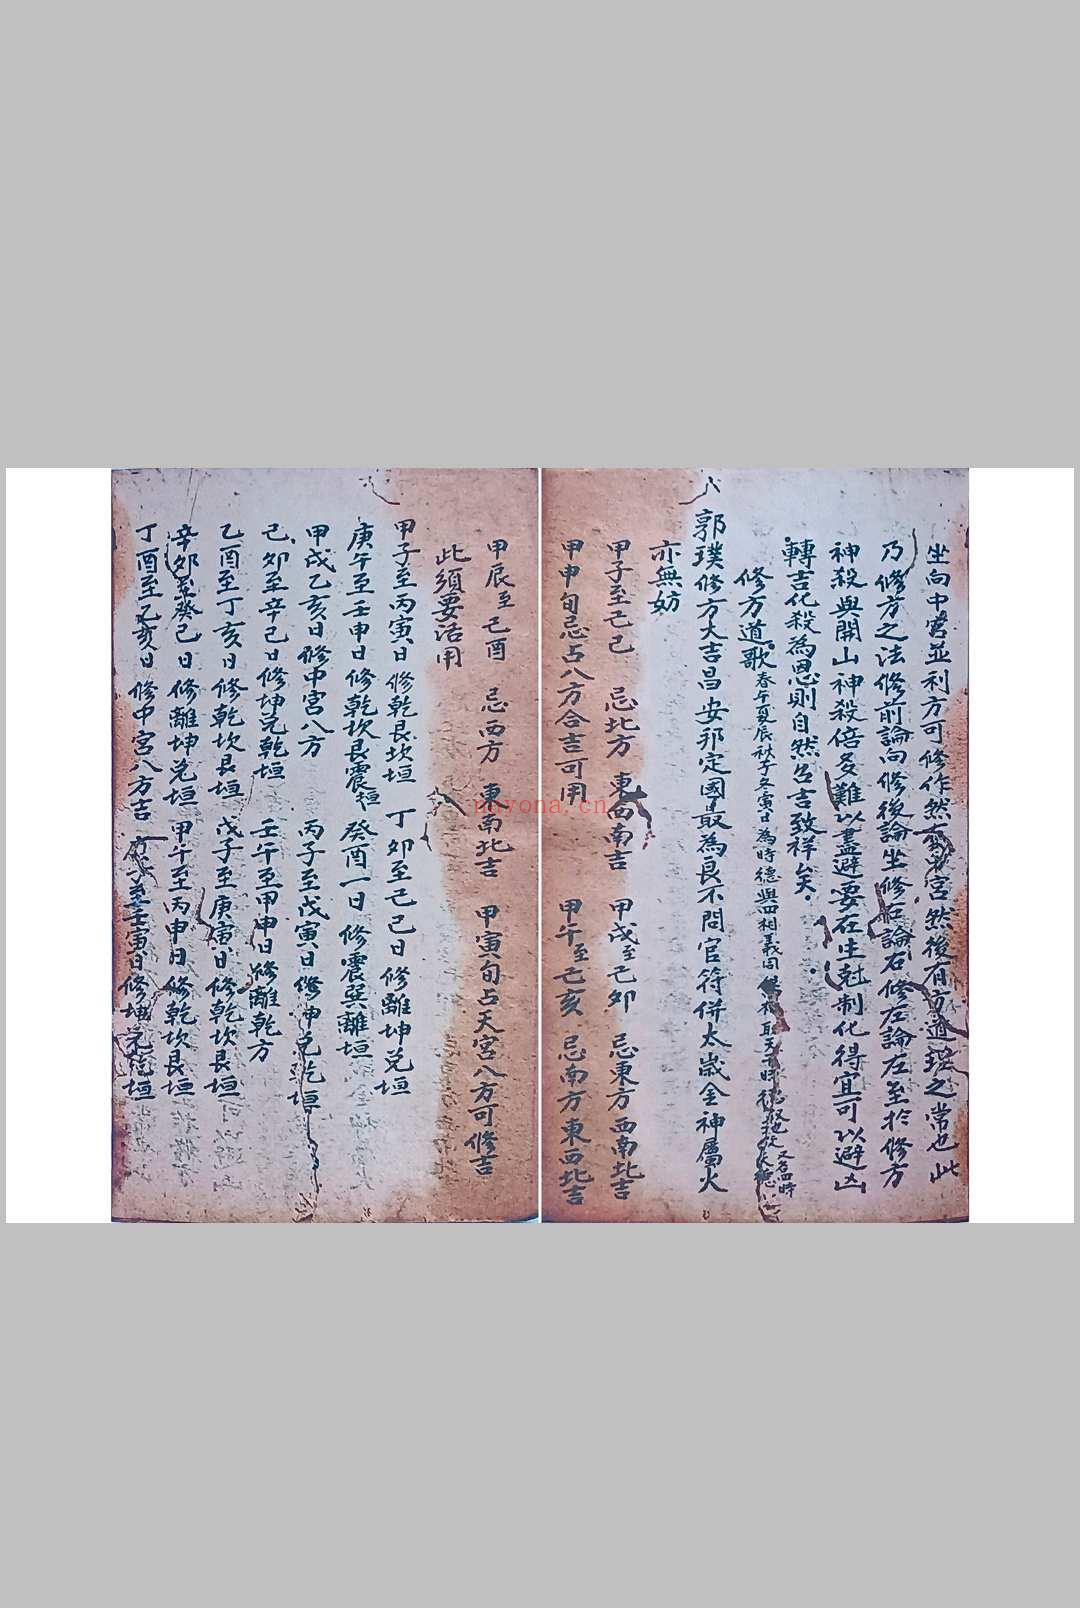 坐向中宮並利方可修作然宮然後有方道理之常也此
乃修方之法修前論向修後論坐修右論右修左論左至於修方
神殺與開山神殺倍多難以盡避要在生尅制化得宜可以避凶
轉吉化殺為恩則自然召吉致祥矣
修方道歌春午夏辰秋子冬寅日為時德與四相義同
又名四時天德
郭璞修方大吉昌安邦定國最為良不問官符併太歲金神屬火
亦無妨
甲子至己巳 忌北方 東西南吉 甲戌至己卯 忌東方 西南北吉
甲申旬忌占八方合吉可用 甲午至己亥 忌南方 東西北吉
甲辰至己酉 忌西方 東南北吉 甲寅旬占天宮八方可修吉
此須要活用
甲子至丙寅日修乾艮坎垣 丁卯至己巳日修離坤兌垣
庚午至壬申日修乾坎艮震垣 癸酉一日修震巽離垣
甲戌乙亥日修中宮八方 丙子至戊寅日修坤兌乾垣
己卯至辛巳日修坤兌乾垣 壬午至甲申日修離乾方
乙酉至丁亥日修乾坎艮垣 戊子至庚寅日修乾坎艮垣
辛卯至癸巳日修離坤兌垣 甲午至丙申日修乾坎艮垣
丁酉至己亥日修中宮八方吉 子至壬寅日修坤兌乾垣
noyona.cn